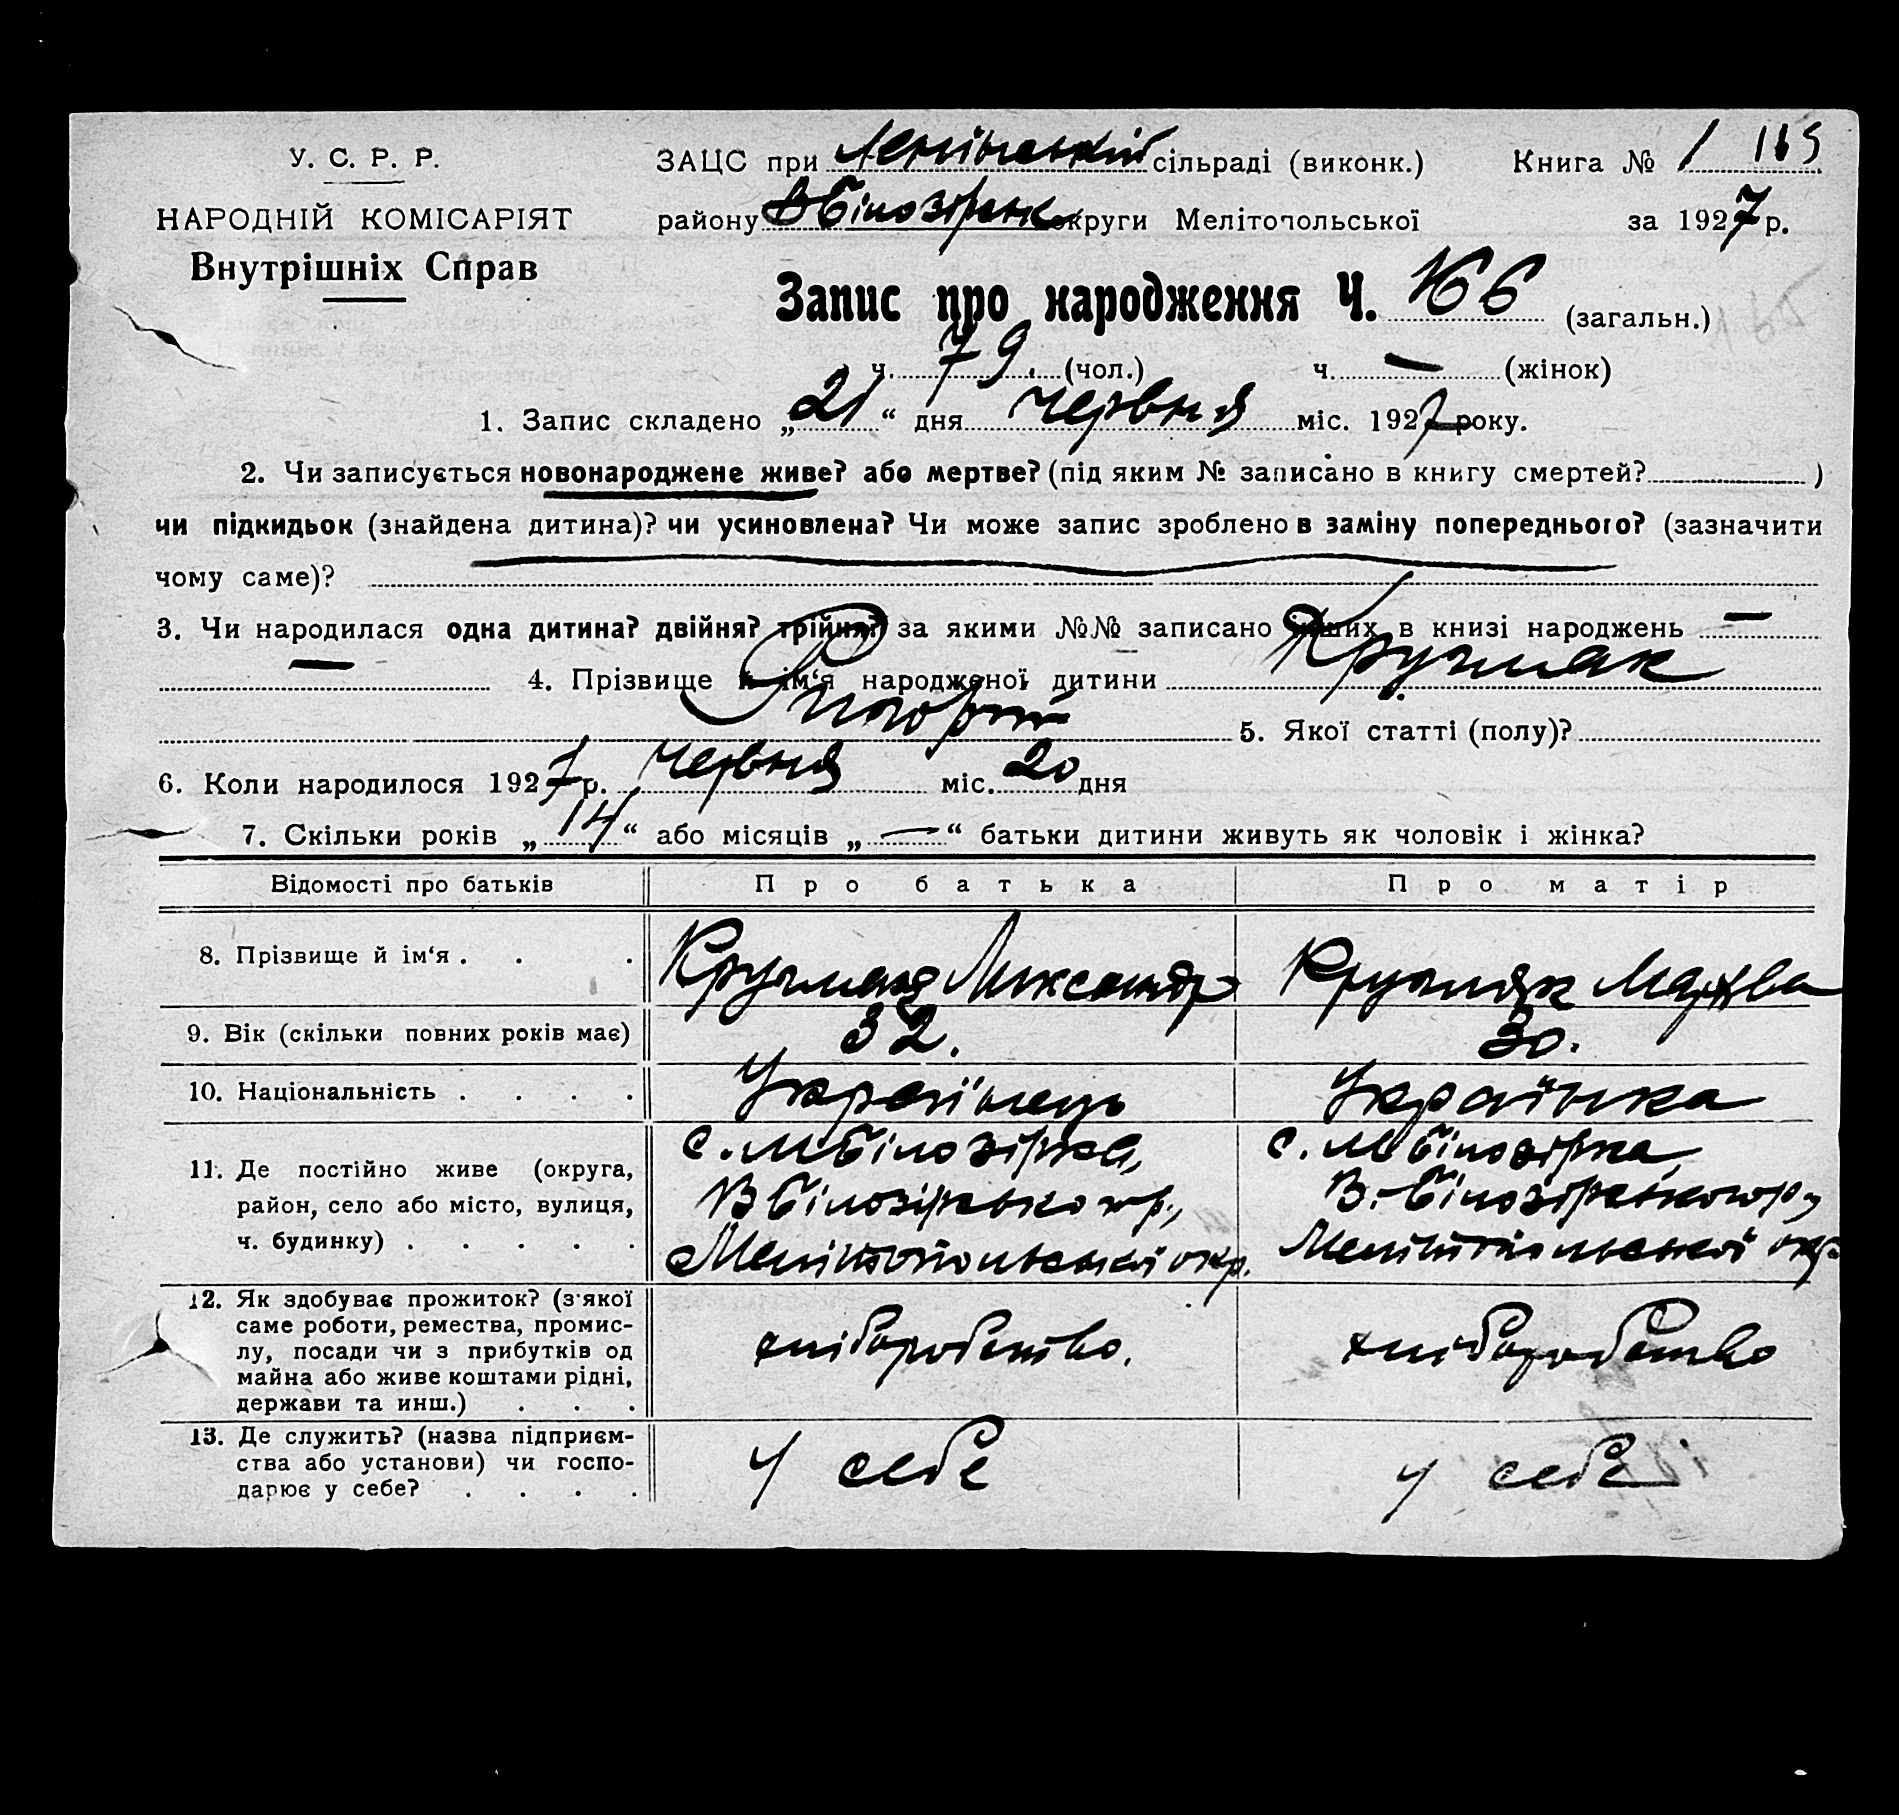 У. С. Р. Р.
НАРОДНІЙ КОМІСАРІЯТ
Внутрішніх Справ
ЗАЦС при Ленінській сільраді (виконк.) Книга № 1 165
району В Білозірськ округи Мелітопольської за 1927 р.
Запис про народження Ч. 166 (загальн.)
ч. 79. (чол.) ч. — (жінок)
1. Запис складено „21“ дня червня міс. 1927 року.
2. Чи записується новонароджене живе? або мертве? (під яким № записано в книгу смертей? )
чи підкидьок (знайдена дитина)? чи усиновлена? Чи може запис зроблено в заміну попереднього? (зазначити
чому саме)?
3. Чи народилася одна дитина? двійня? трійня? за якими №№ записано інших в книзі народжень —
— 4. Прізвище й ім‘я народженої дитини
5. Якої статті (полу)?
6. Коли народилося 1927 р. червня міс. 20 дня
7. Скільки років „14“ або місяців „—“ батьки дитини живуть як чоловік і жінка?
Відомості про батьків Про батька Про матір
8. Прізвище й ім‘я . . .
9. Вік (скільки повних років має) 32. 30.
10. Національність . . . . Українець Українка
11. Де постійно живе (округа, с. М Білозірка, с. М Білозірка,
район, село або місто, вулиця, В Білозірського р., В.-Білозірського р,
ч. будинку) . . . . . Мелітопольської окр. Мелітопольської окр
12. Як здобуває прожиток? (з'якої
саме роботи, ремества, промис-
лу, посади чи з прибутків од хліборобство. хліборобство
майна або живе коштами рідні,
держави та инш.) . . .
13. Де служить? (назва підприєм-
ства або установи) чи госпо- У себе у себе
дарює у себе? . . . .